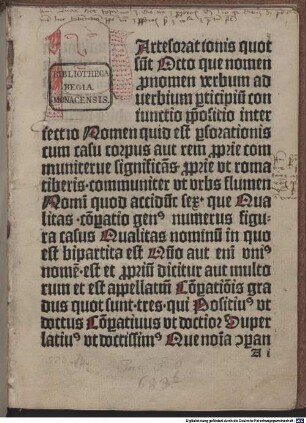 BIBLIOTHECA
REGIA
MONACENSIS.
Artesorationis quot
sūt Octo que nomen
pnomen verbum ad
verbium pticipiū con
iunctio pposicio inter
iectio Nomen quid est ps orationis
cum casu corpus aut rem proprie com
muniterue significās proprie vt roma
tiberis · communiter vt vrbs flumen
Nomi quod accidūt sex · que Qua
litas · cōpatio genꝰ numerus figu
ra casus Qualitas nominū in quo
est bipartita est Nāo aut eni vniꝰ
nomē · est et propriū dicitur aut multo
rum et est appellatiū Cōpatiōis gra
dus quot sunt · tres · qui Positiuꝰ vt
doctus Cōpatiuus vt doctior Super
latiuꝰ vt doctissimꝰ Que noīa ꝯpan
A i